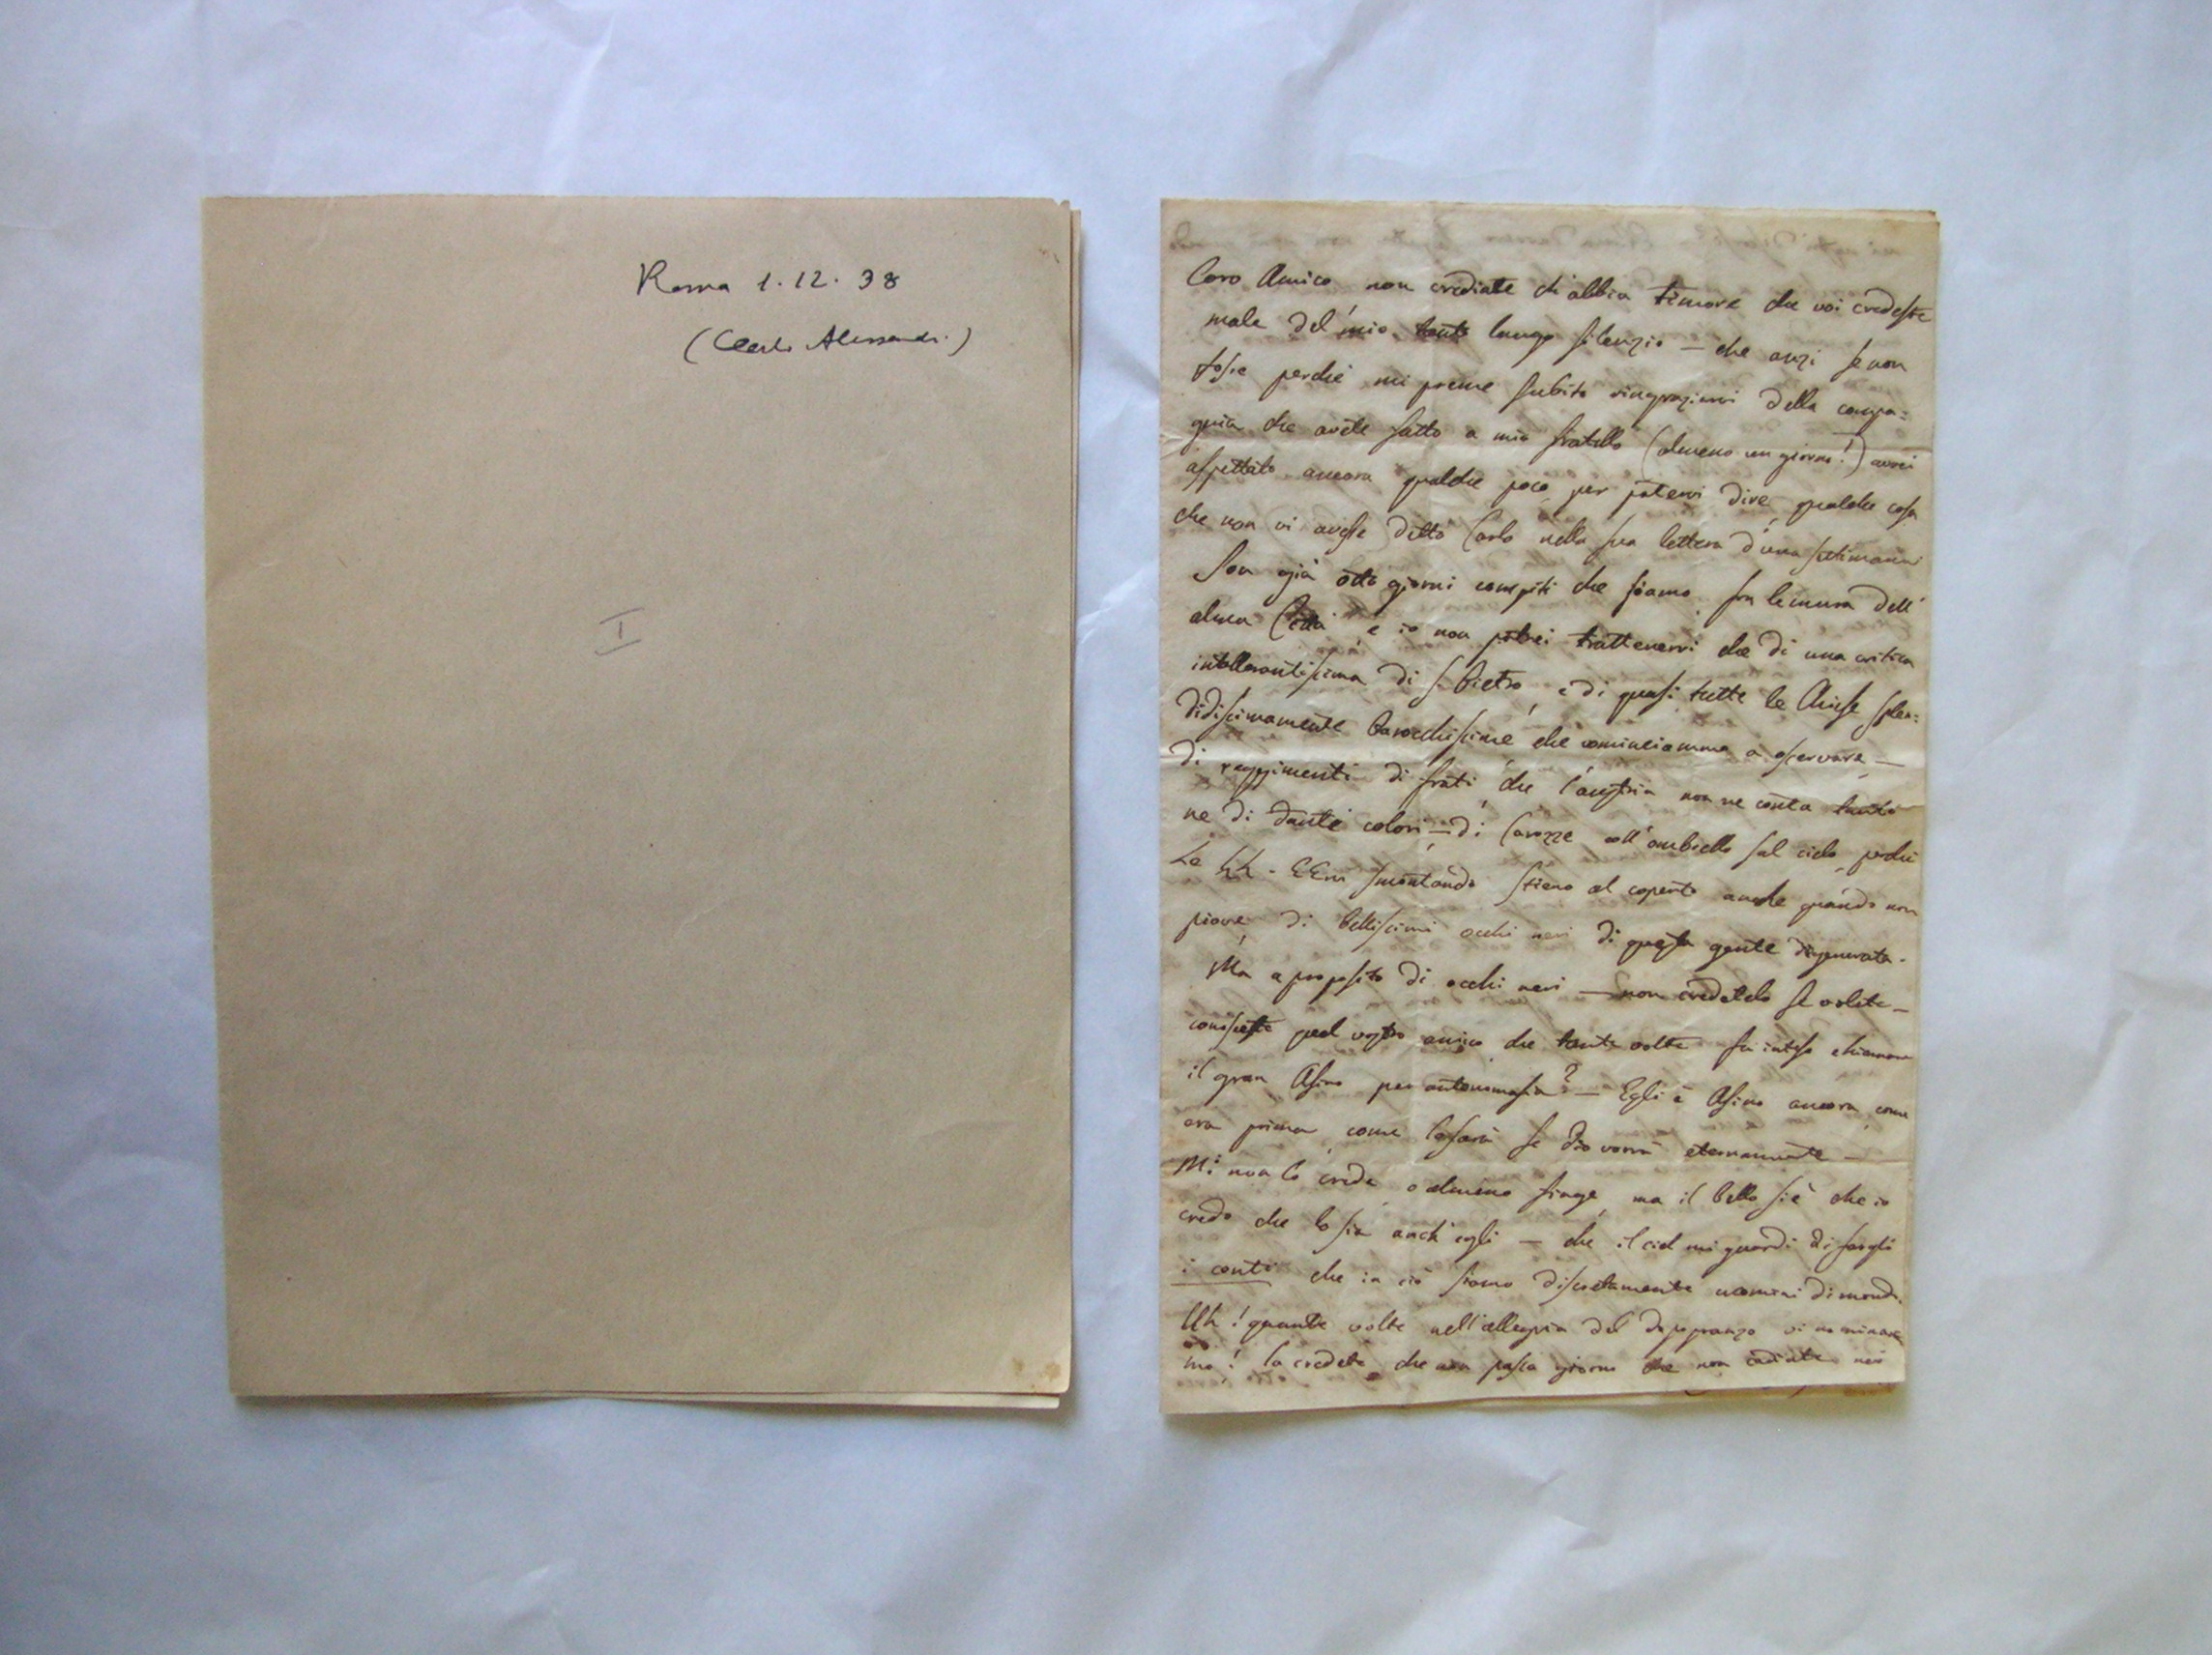 Roma 1. 12. 38
(Carlo Alessandri)
I
Caro Amico non crediate ch'abbia timore che voi credeste
male del mio tanto lungo silenzio — che anzi se non
fosse perché mi preme subito ringraziarvi della compa=
gnia che avete fatto a mio fratello (almeno un giorno!) avrei
aspettato ancora qualche poco per potervi dire qualche cosa
che non vi avesse detto Carlo nella sua lettera d'una settimana
Son già otto giorni compiti che siamo fra le mura dell'
alma Città, e io non potrei trattenervi che di una critica
intollerantissima di S. Pietro, e di quasi tutte le Chiese splen=
didissimamente barocchissime che cominciammo a osservare —
di reggimenti di frati che l'austria non ne conta tanti
ne di tanti colori — di Carozze coll'ombrello sul cielo perché
Le LL. EEm smontando stieno al coperto anche quando non
piove, di bellissimi occhi neri di questa gente degenerata.
Ma a proposito di occhi neri — non credetelo se volete —
conosceste quel vostro amico che tante volte fu inteso chiamare
il gran Asino per antonomasia? — Egli è Asino ancora come
era prima, come lo sarà se Dio vorrà eternamente —
Mi non lo crede, o almeno finge, ma il bello si è che io
credo che lo sia anch'egli — che il ciel mi guardi di fargli
i conti che in ciò siamo discretamente uomini di mondo.
Uh! quante volte nell'allegria del dopopranzo vi nominia
mo! lo credete che non passa giorno che non cadiate nei